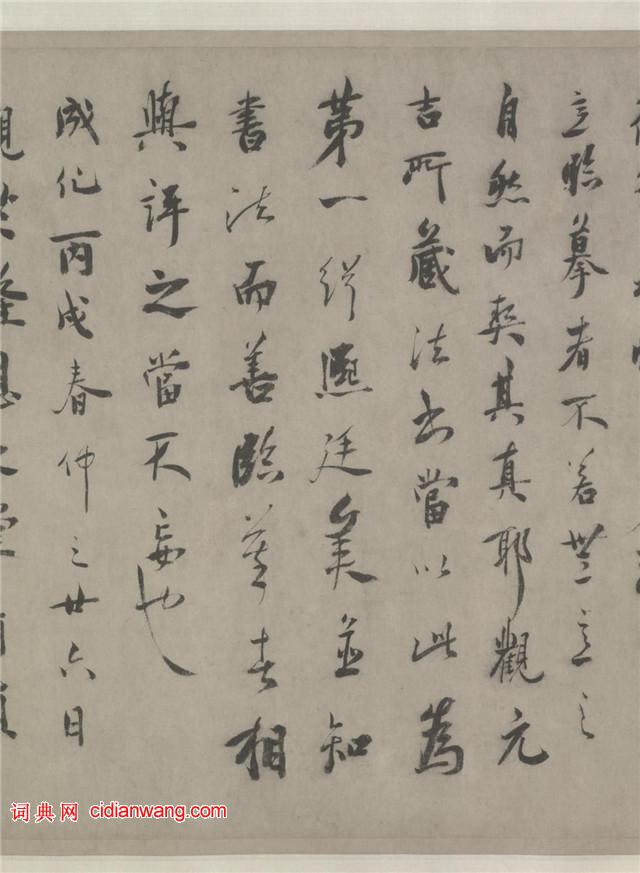 意臨摹者不若無意之
自然而契其真耶觀元
吉所藏法書當以此為
第一熙廷美並知
書法而善臨摹者相
與評之當无妄也
成化丙戌春仲之廿六日
词典网 cidianwang.com